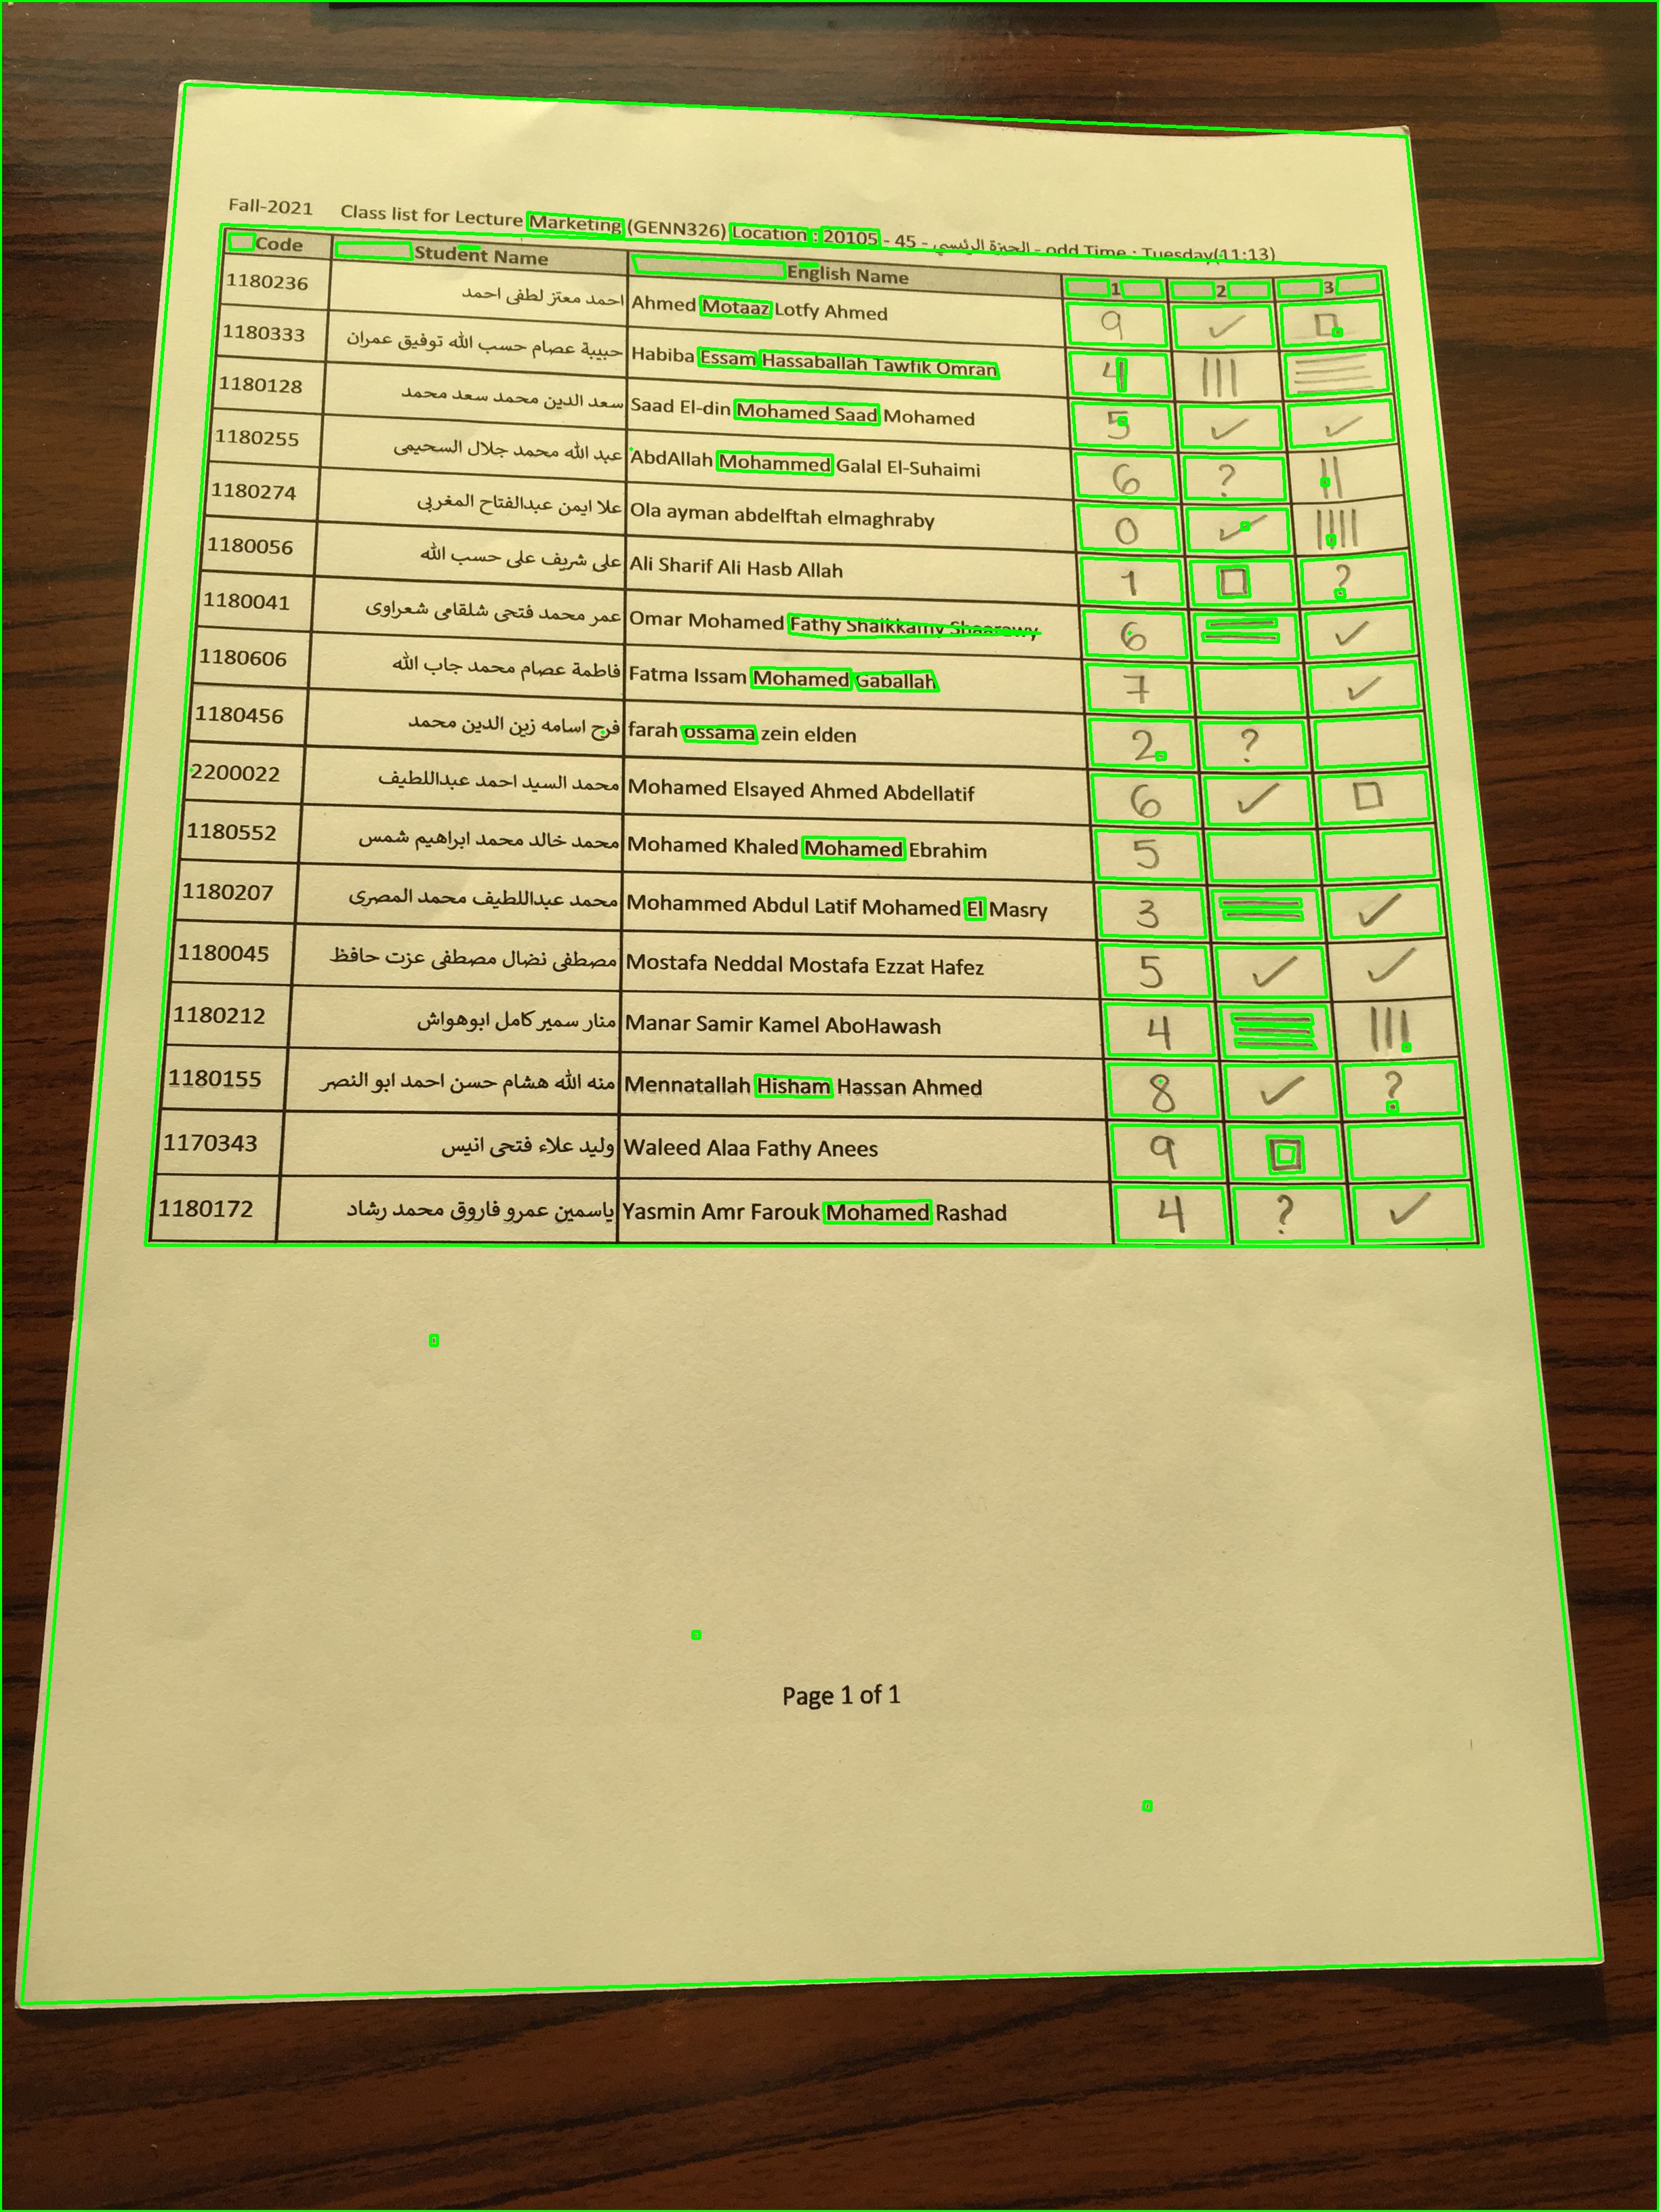 Fall-2021 Class list for Lecture Marketing (GENN326) Location : 20105 - 45 - الجيزة الرئيسي - odd Time : Tuesday(11:13)
Code Student Name English Name 1 2 3
1180236 احمد معتز لطفى احمد Ahmed Motaaz Lotfy Ahmed 9 ✓ □
1180333 حبيبة عصام حسب الله توفيق عمران Habiba Essam Hassaballah Tawfik Omran 4 |||
1180128 سعد الدين محمد سعد محمد Saad El-din Mohamed Saad Mohamed 5 ✓ ✓
1180255 عبد الله محمد جلال السحيمى AbdAllah Mohammed Galal El-Suhaimi 6 ? ||
1180274 علا ايمن عبدالفتاح المغربى Ola ayman abdelftah elmaghraby 0 ✓ ||||
1180056 على شريف على حسب الله Ali Sharif Ali Hasb Allah 1 □ ?
1180041 عمر محمد فتحى شلقامى شعراوى Omar Mohamed Fathy 6 ✓
1180606 فاطمة عصام محمد جاب الله Fatma Issam Mohamed Gaballah 7 ✓
1180456 فرح اسامه زين الدين محمد farah ossama zein elden 2 ?
2200022 محمد السيد احمد عبداللطيف Mohamed Elsayed Ahmed Abdellatif 6 ✓ □
1180552 محمد خالد محمد ابراهيم شمس Mohamed Khaled Mohamed Ebrahim 5
1180207 محمد عبداللطيف محمد المصرى Mohammed Abdul Latif Mohamed El Masry 3 ✓
1180045 مصطفى نضال مصطفى عزت حافظ Mostafa Neddal Mostafa Ezzat Hafez 5 ✓ ✓
1180212 منار سمير كامل ابوهواش Manar Samir Kamel AboHawash 4 |||
1180155 منه الله هشام حسن احمد ابو النصر Mennatallah Hisham Hassan Ahmed 8 ✓ ?
1170343 وليد علاء فتحى انيس Waleed Alaa Fathy Anees 9 □
1180172 ياسمين عمرو فاروق محمد رشاد Yasmin Amr Farouk Mohamed Rashad 4 ? ✓
Page 1 of 1